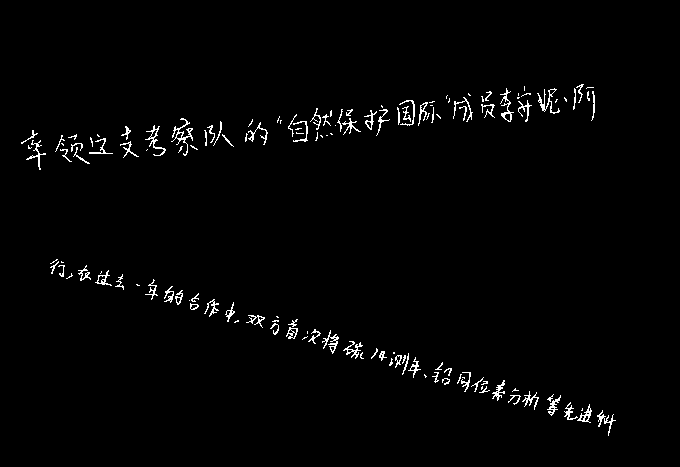 率领这支考察队的“自然保护国际”成员李安妮·阿
行,在过去一年的合作中,双方首次将碳14测年、铅同位素分析等先进科